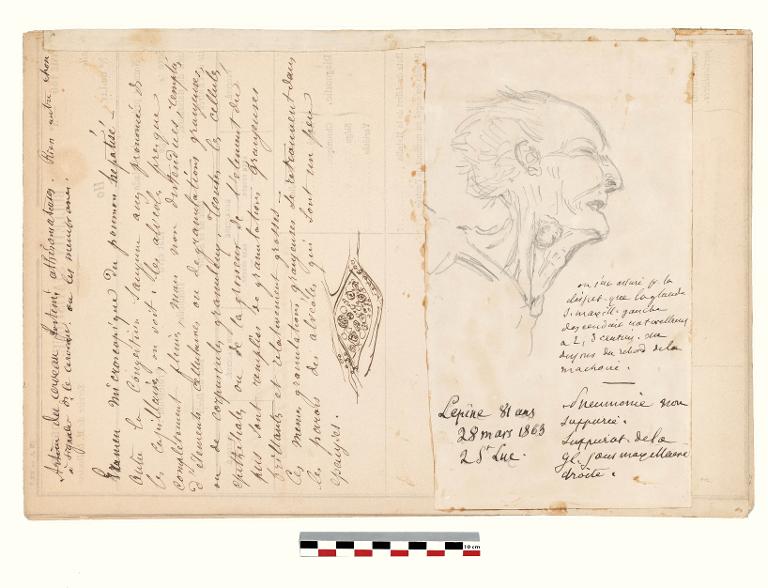 Artères du cerveau fortement athéromateuses. Rien autre chose
à signaler ds le cerveau ou les membranes.
Examen microscopique du poumon hépatisé —
Outre la Congestion sanguine assez prononcée ds
les capillaires, on voit les alvéoles presque
complètement pleins, mais non distendues, remplis
d'éléments cellulaires ou de granulations graisseuses,
ou de corpuscules granuleux, toutes les cellules
épithéliales, ou de la grosseur de l'élément du
pus sont remplies de granulations graisseuses
brillantes et relativement grosses —
Ces mêmes granulations graisseuses se retrouvent dans
les parois des alvéoles qui sont un peu
épaissies.
on s'est assuré p. la
dissect. que la glande
s. maxill. gauche
descendait naturellement
à 2, 3 centim. au
dessous du rebord de la
machoire.
Lepine 81 ans
28 mars 1863
2 St Luc.
Pneumonie non
suppurée.
Suppurat. de la
gl. sous maxillaire
droite.
10 cm